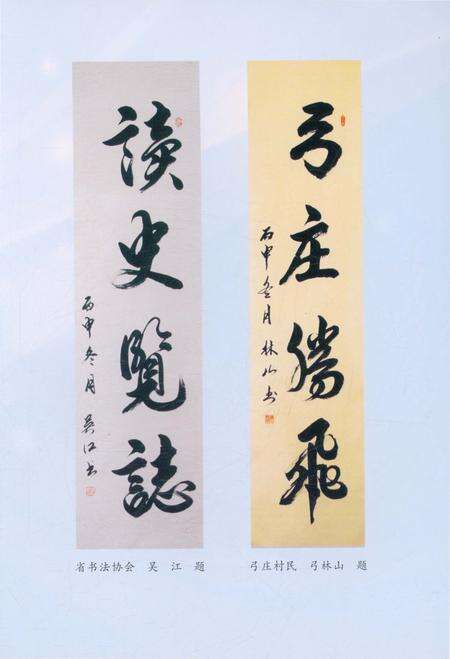 讀史覽誌
丙申冬月 吴江书
弓庄騰飛
丙申冬月 林山书
省书法协会 吴 江 题
弓庄村民 弓林山 题